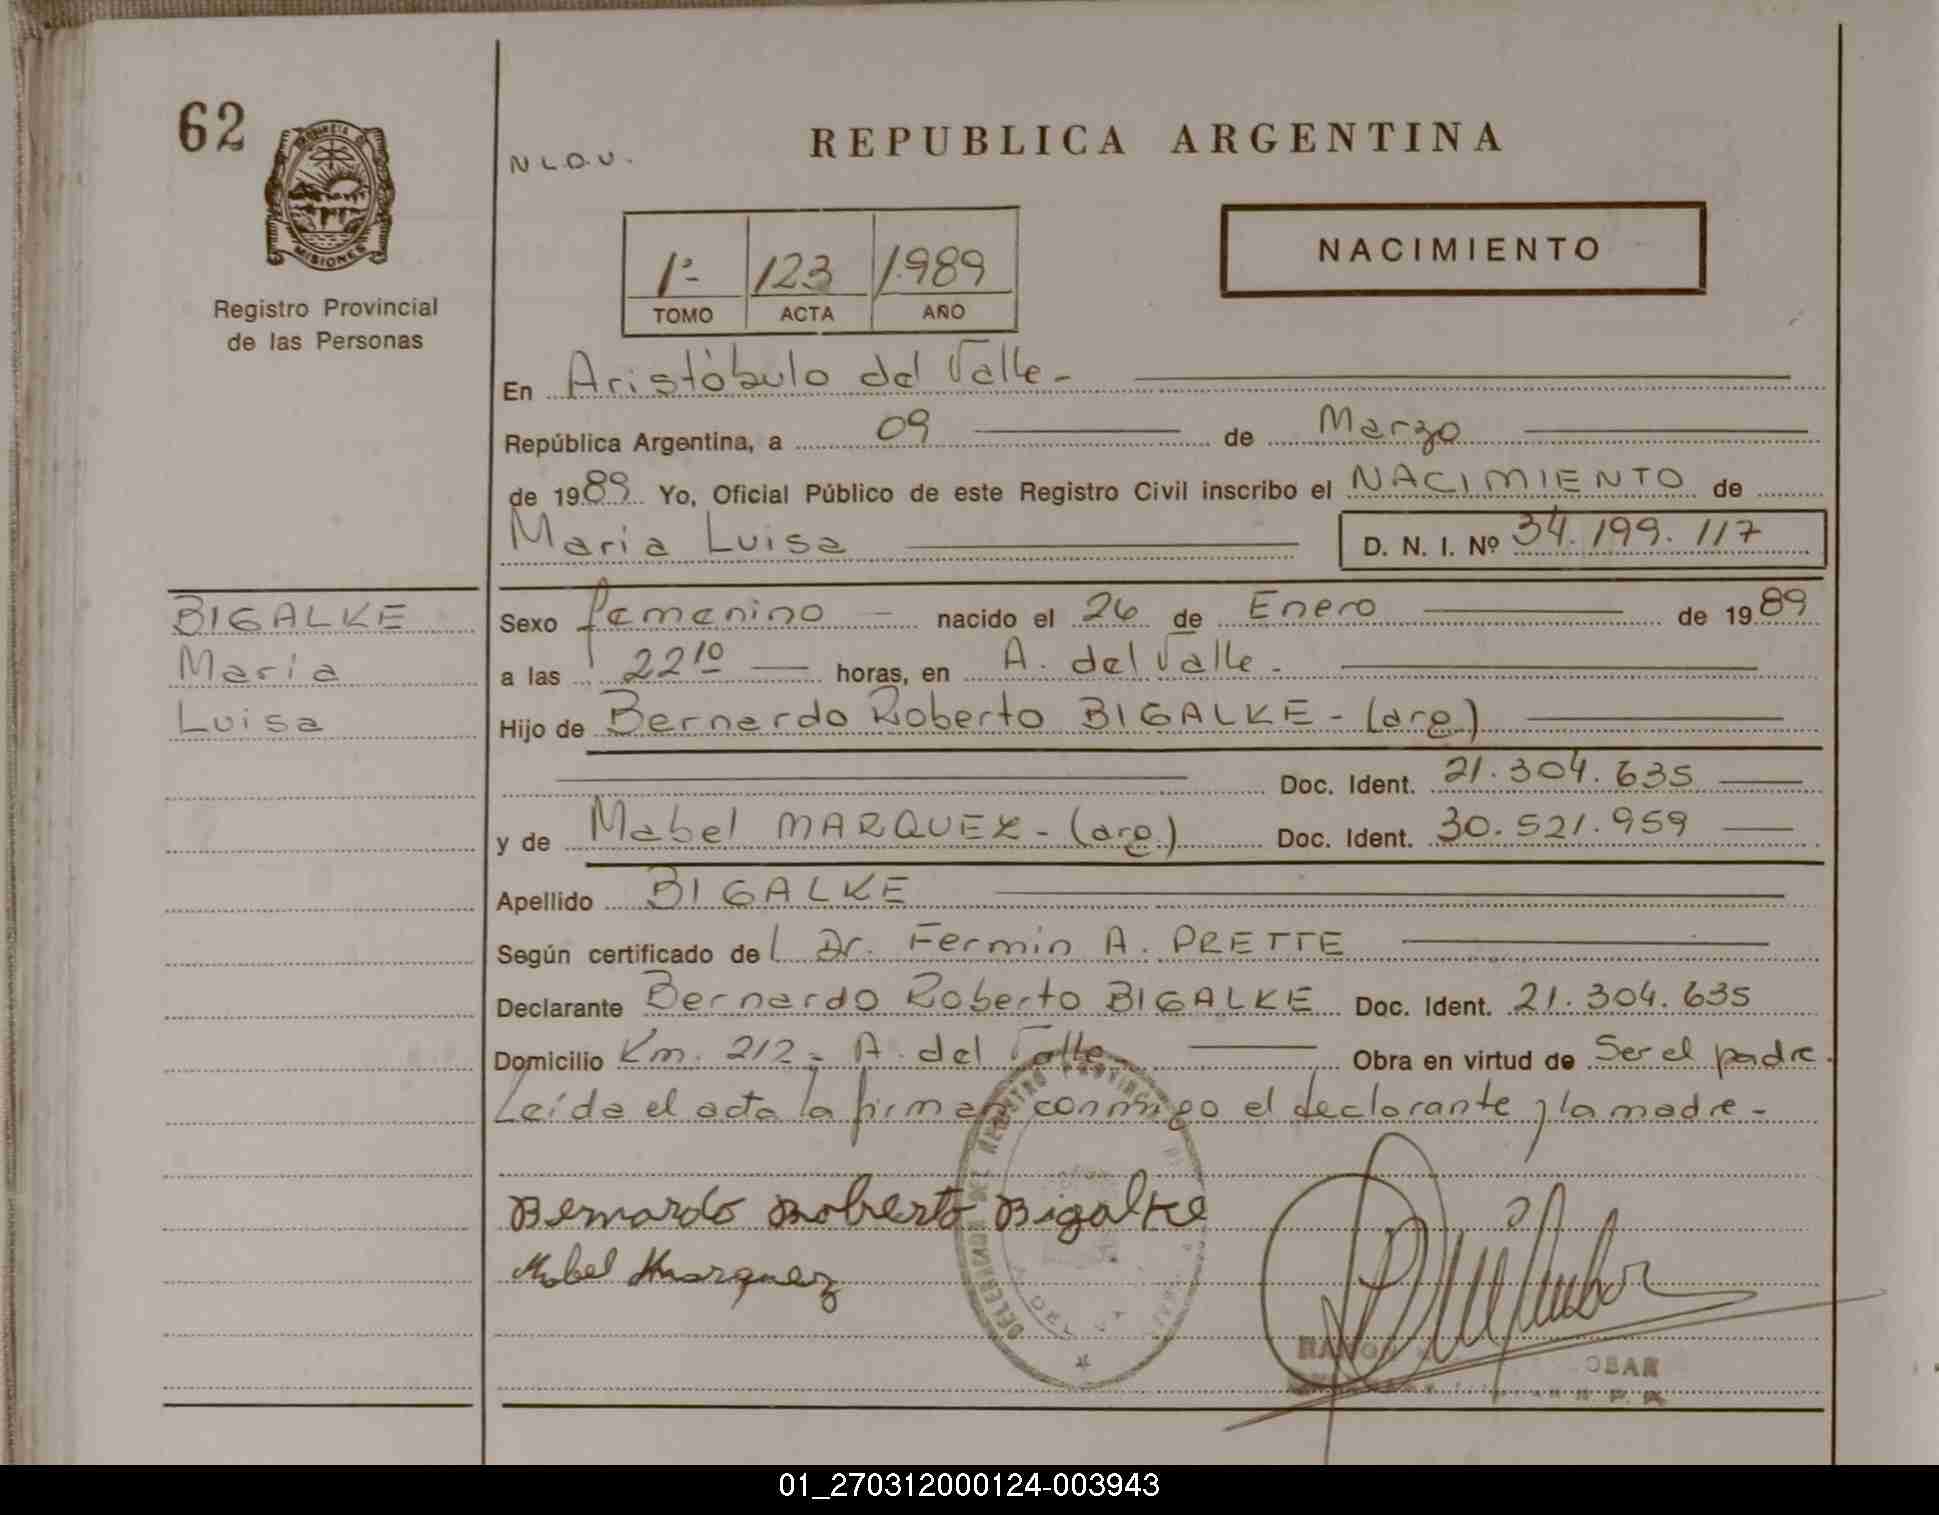 62
PROVINCIA D
MISIONES
Registro Provincial
de las Personas
N L O U.
REPUBLICA ARGENTINA
NACIMIENTO
1º 123 1989
TOMO ACTA AÑO
En Aristóbulo del Valle-
República Argentina, a 09 de Marzo
de 1989 Yo, Oficial Público de este Registro Civil inscribo el NACIMIENTO de
Maria Luisa D. N. I. Nº 34.199.117
BIGALKE
Maria
Luisa
Sexo femenino nacido el 26 de Enero de 1989
a las 22 10 horas, en A. del Valle.
Hijo de Bernardo Roberto BIGALKE - (arg.)
Doc. Ident. 21.304.635
y de Mabel MARQUEZ - (arg.) Doc. Ident. 30.521.959
Apellido BIGALKE
Según certificado del Dr. Fermin A. PRETTE
Declarante Bernardo Roberto BIGALKE Doc. Ident. 21.304.635
Domicilio Km. 212 - A. del Valle- Obra en virtud de Ser el padre.
Leída el acta la firman conmigo el declarante y la madre-
Bernardo Roberto Bigalke
Mabel Marquez
DEL REGISTRO PROVINCIAL DE
RAMON OBAR
01_270312000124-003943